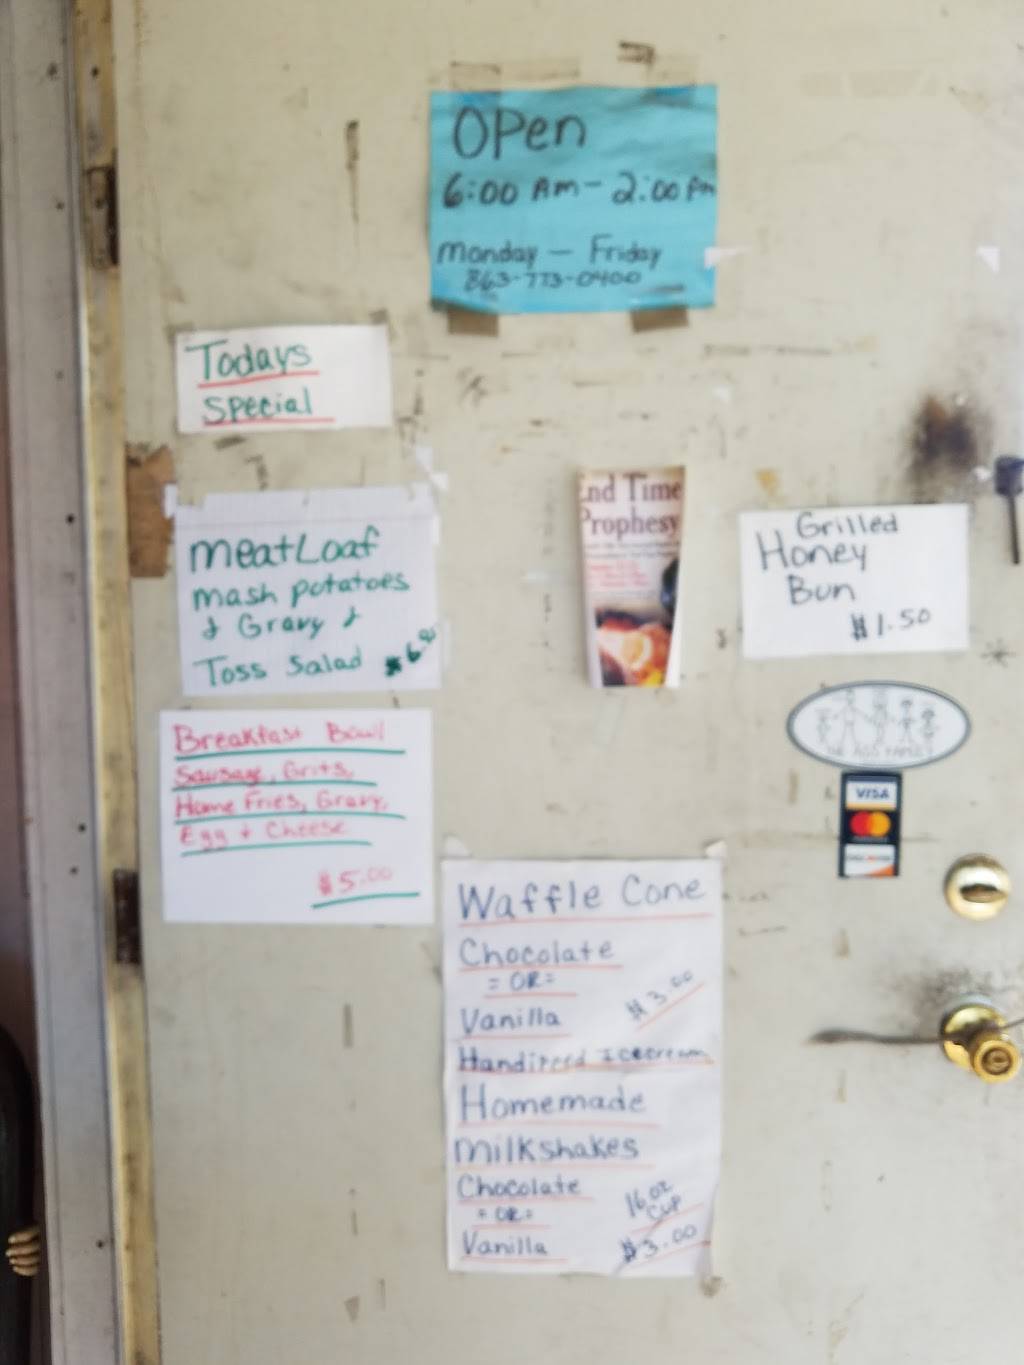 OPen
6:00 Am - 2:00 Pm
monday - Friday
863-773-0400
Todays
special
meatLoaf
mash potatoes
& Gravy &
Toss Salad
End Time
Prophesy
Grilled
Honey
Bun
$1.50
Breakfast Bowl
Sausage, Grits,
Home Fries, Gravy,
Egg + Cheese
$5.00
VISA
Waffle Cone
Chocolate
= OR =
Vanilla
$3.00
Icecream
Homemade
milkshakes
Chocolate
= OR =
Vanilla
16 oz
CUP
$3.00